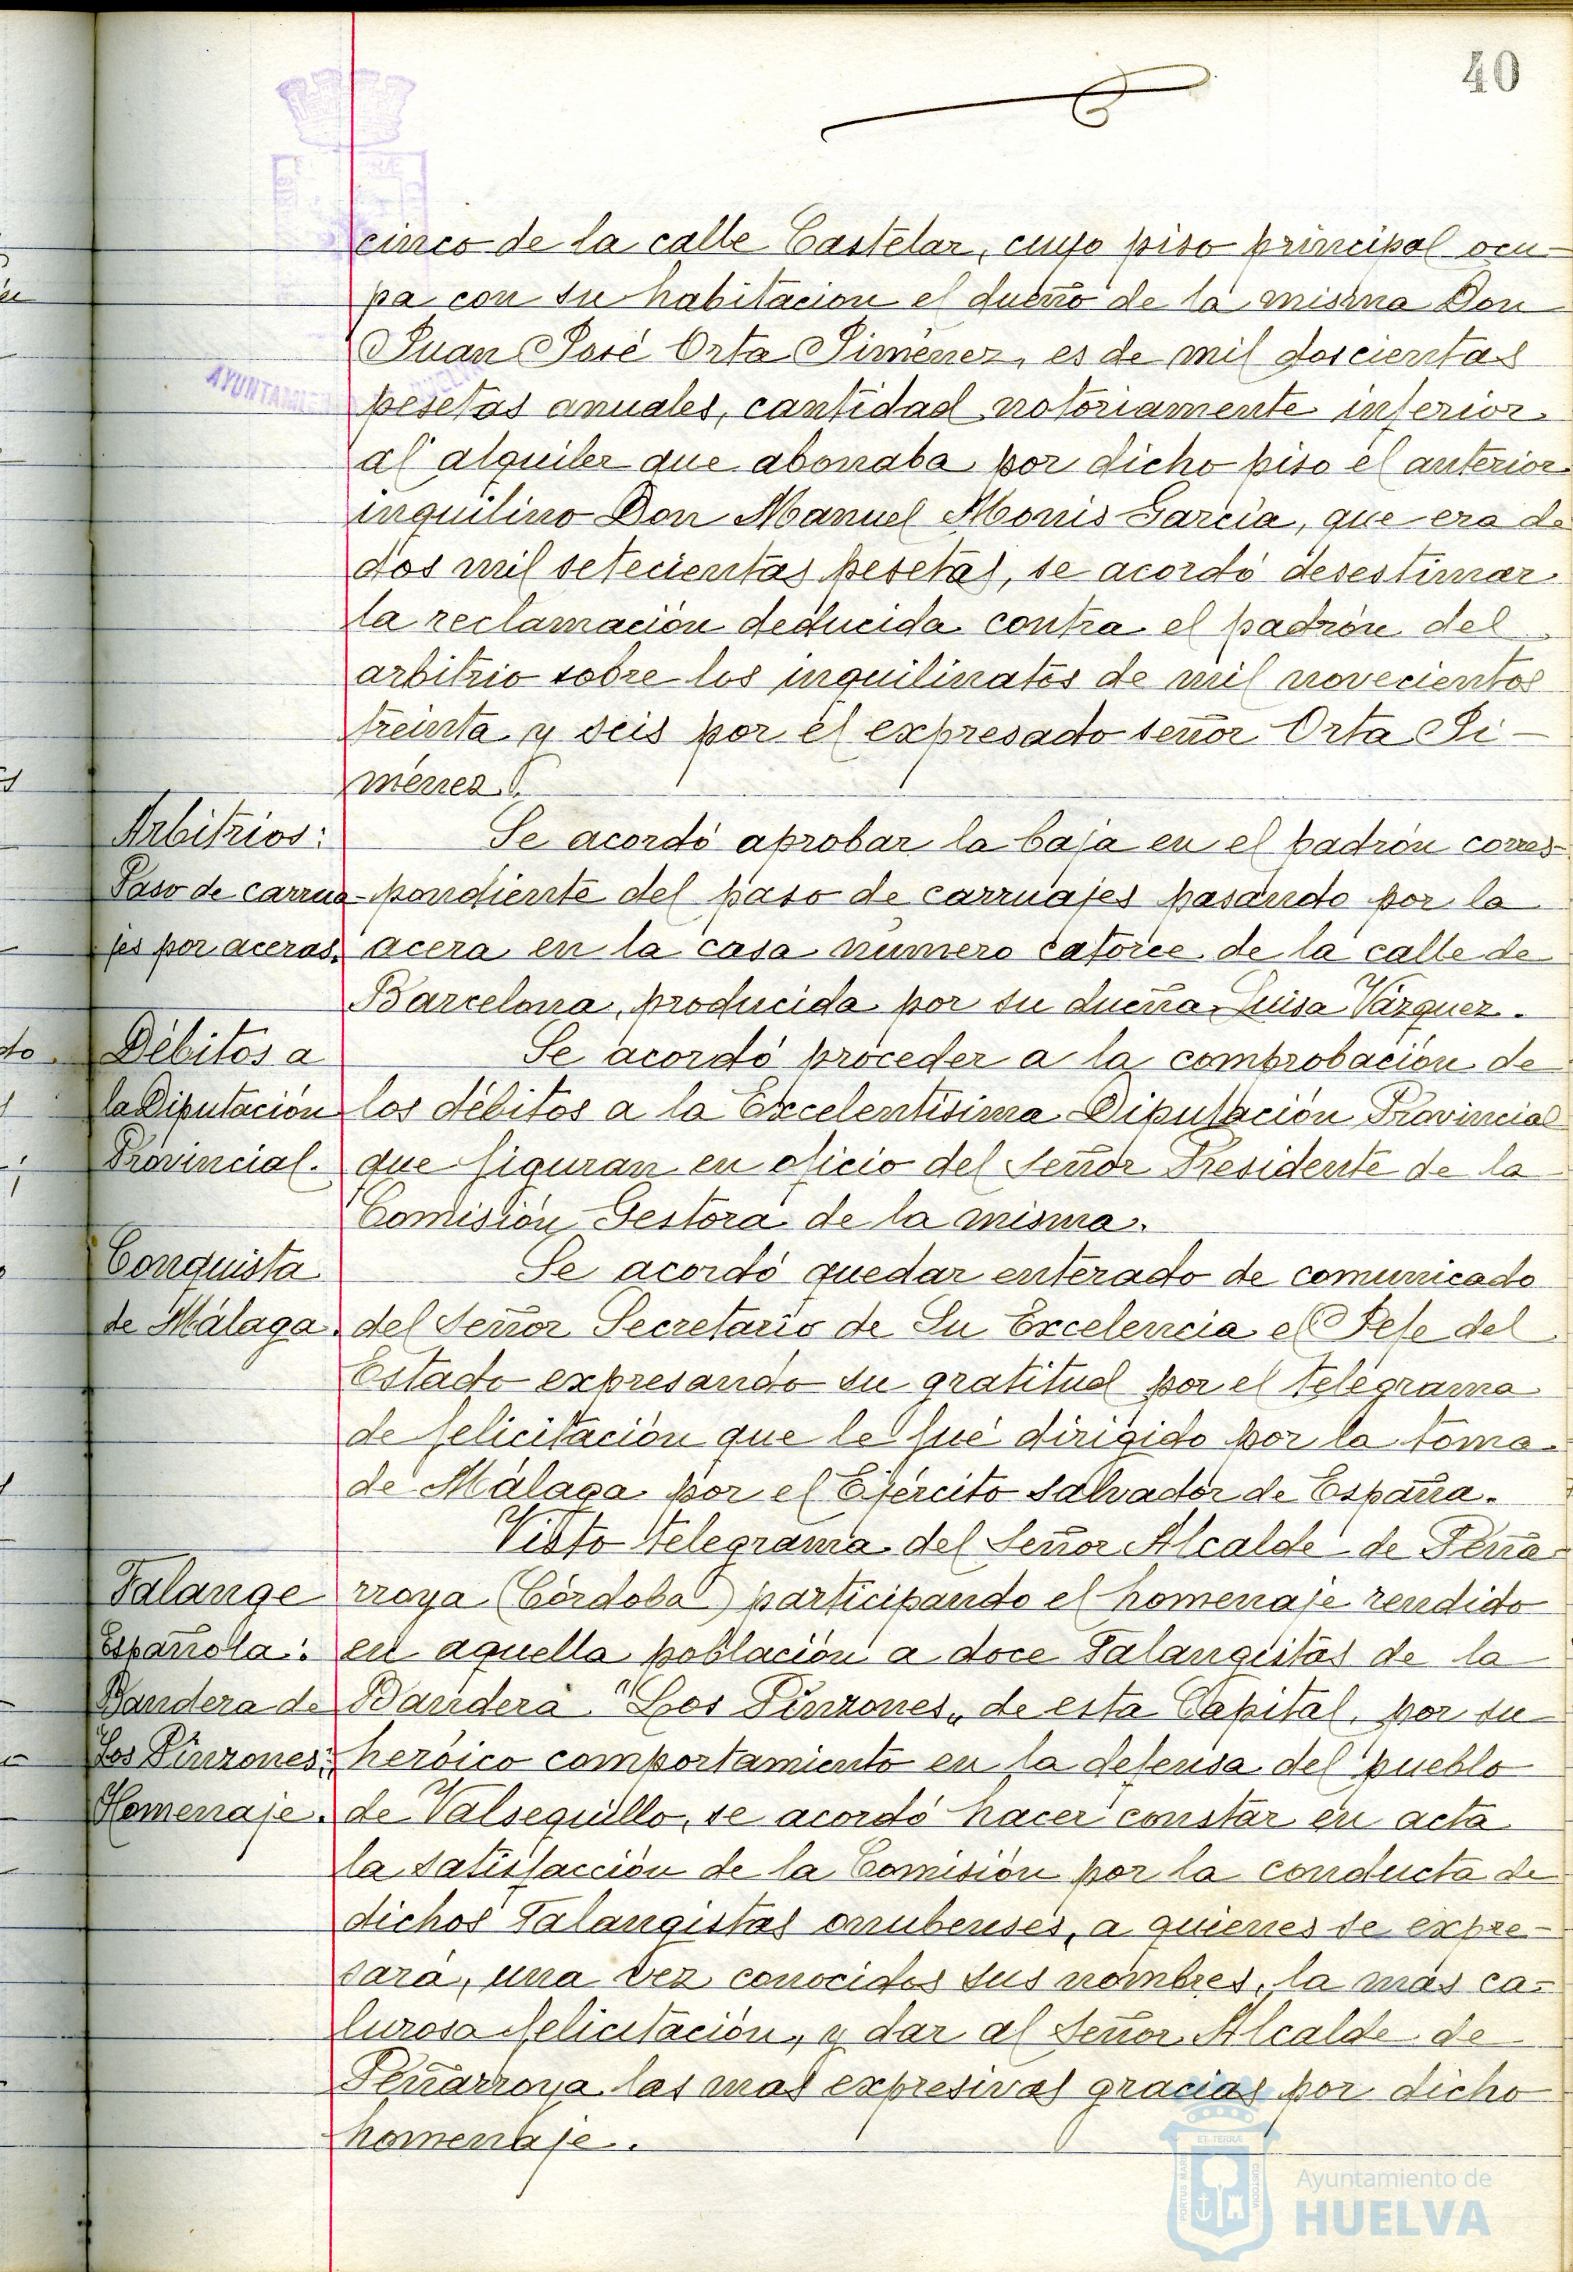 40
cinco de la calle Castelar, cuyo piso principal ocu-
pa con su habitacion el dueño de la misma Don
Juan José Orta Jiménez, es de mil doscientas
pesetas anuales, cantidad notoriamente inferior
al alquiler que abonaba por dicho piso el anterior
inquilino Don Manuel Monis García, que era de
dos mil setecientas pesetas, se acordó desestimar
la reclamación deducida contra el padrón del
arbitrio sobre los inquilinatos de mil novecientos
treinta y seis por el expresado señor Orta Ji-
ménez.
Arbitrios:
Paso de carrua-
jes por aceras.
Se acordó aprobar la baja en el padrón corres-
pondiente del paso de carruajes pasando por la
acera en la casa número catorce de la calle de
Barcelona, producida por su dueña Luisa Vázquez.
Débitos a
la Diputación
Provincial.
Se acordó proceder a la comprobación de
los débitos a la Excelentísima Diputación Provincial
que figuran en oficio del Señor Presidente de la
Comisión Gestora de la misma.
Conquista
de Málaga.
Se acordó quedar enterado de comunicado
del Señor Secretario de Su Excelencia el Jefe del
Estado expresando su gratitud por el telégrama
de felicitación que le fué dirigido por la toma
de Málaga por el Ejército salvador de España.
Falange
Española:
Bandera de
Los Pinzones:
Homenaje.
Visto telegrama del Señor Alcalde de Peña-
rroya (Córdoba) participando el homenaje rendido
en aquella población a doce Falangistas de la
Bandera "Los Pinzones" de esta Capital, por su
heróico comportamiento en la defensa del pueblo
de Valsequillo, se acordó hacer constar en acta
la satisfacción de la Comisión por la conducta de
dichos Falangistas onubenses, a quienes se expre-
sará, una vez conocidos sus nombres, la más ca-
lurosa felicitación, y dar al Señor Alcalde de
Peñarroya las mas expresivas gracias por dicho
homenaje.
Ayuntamiento de
HUELVA